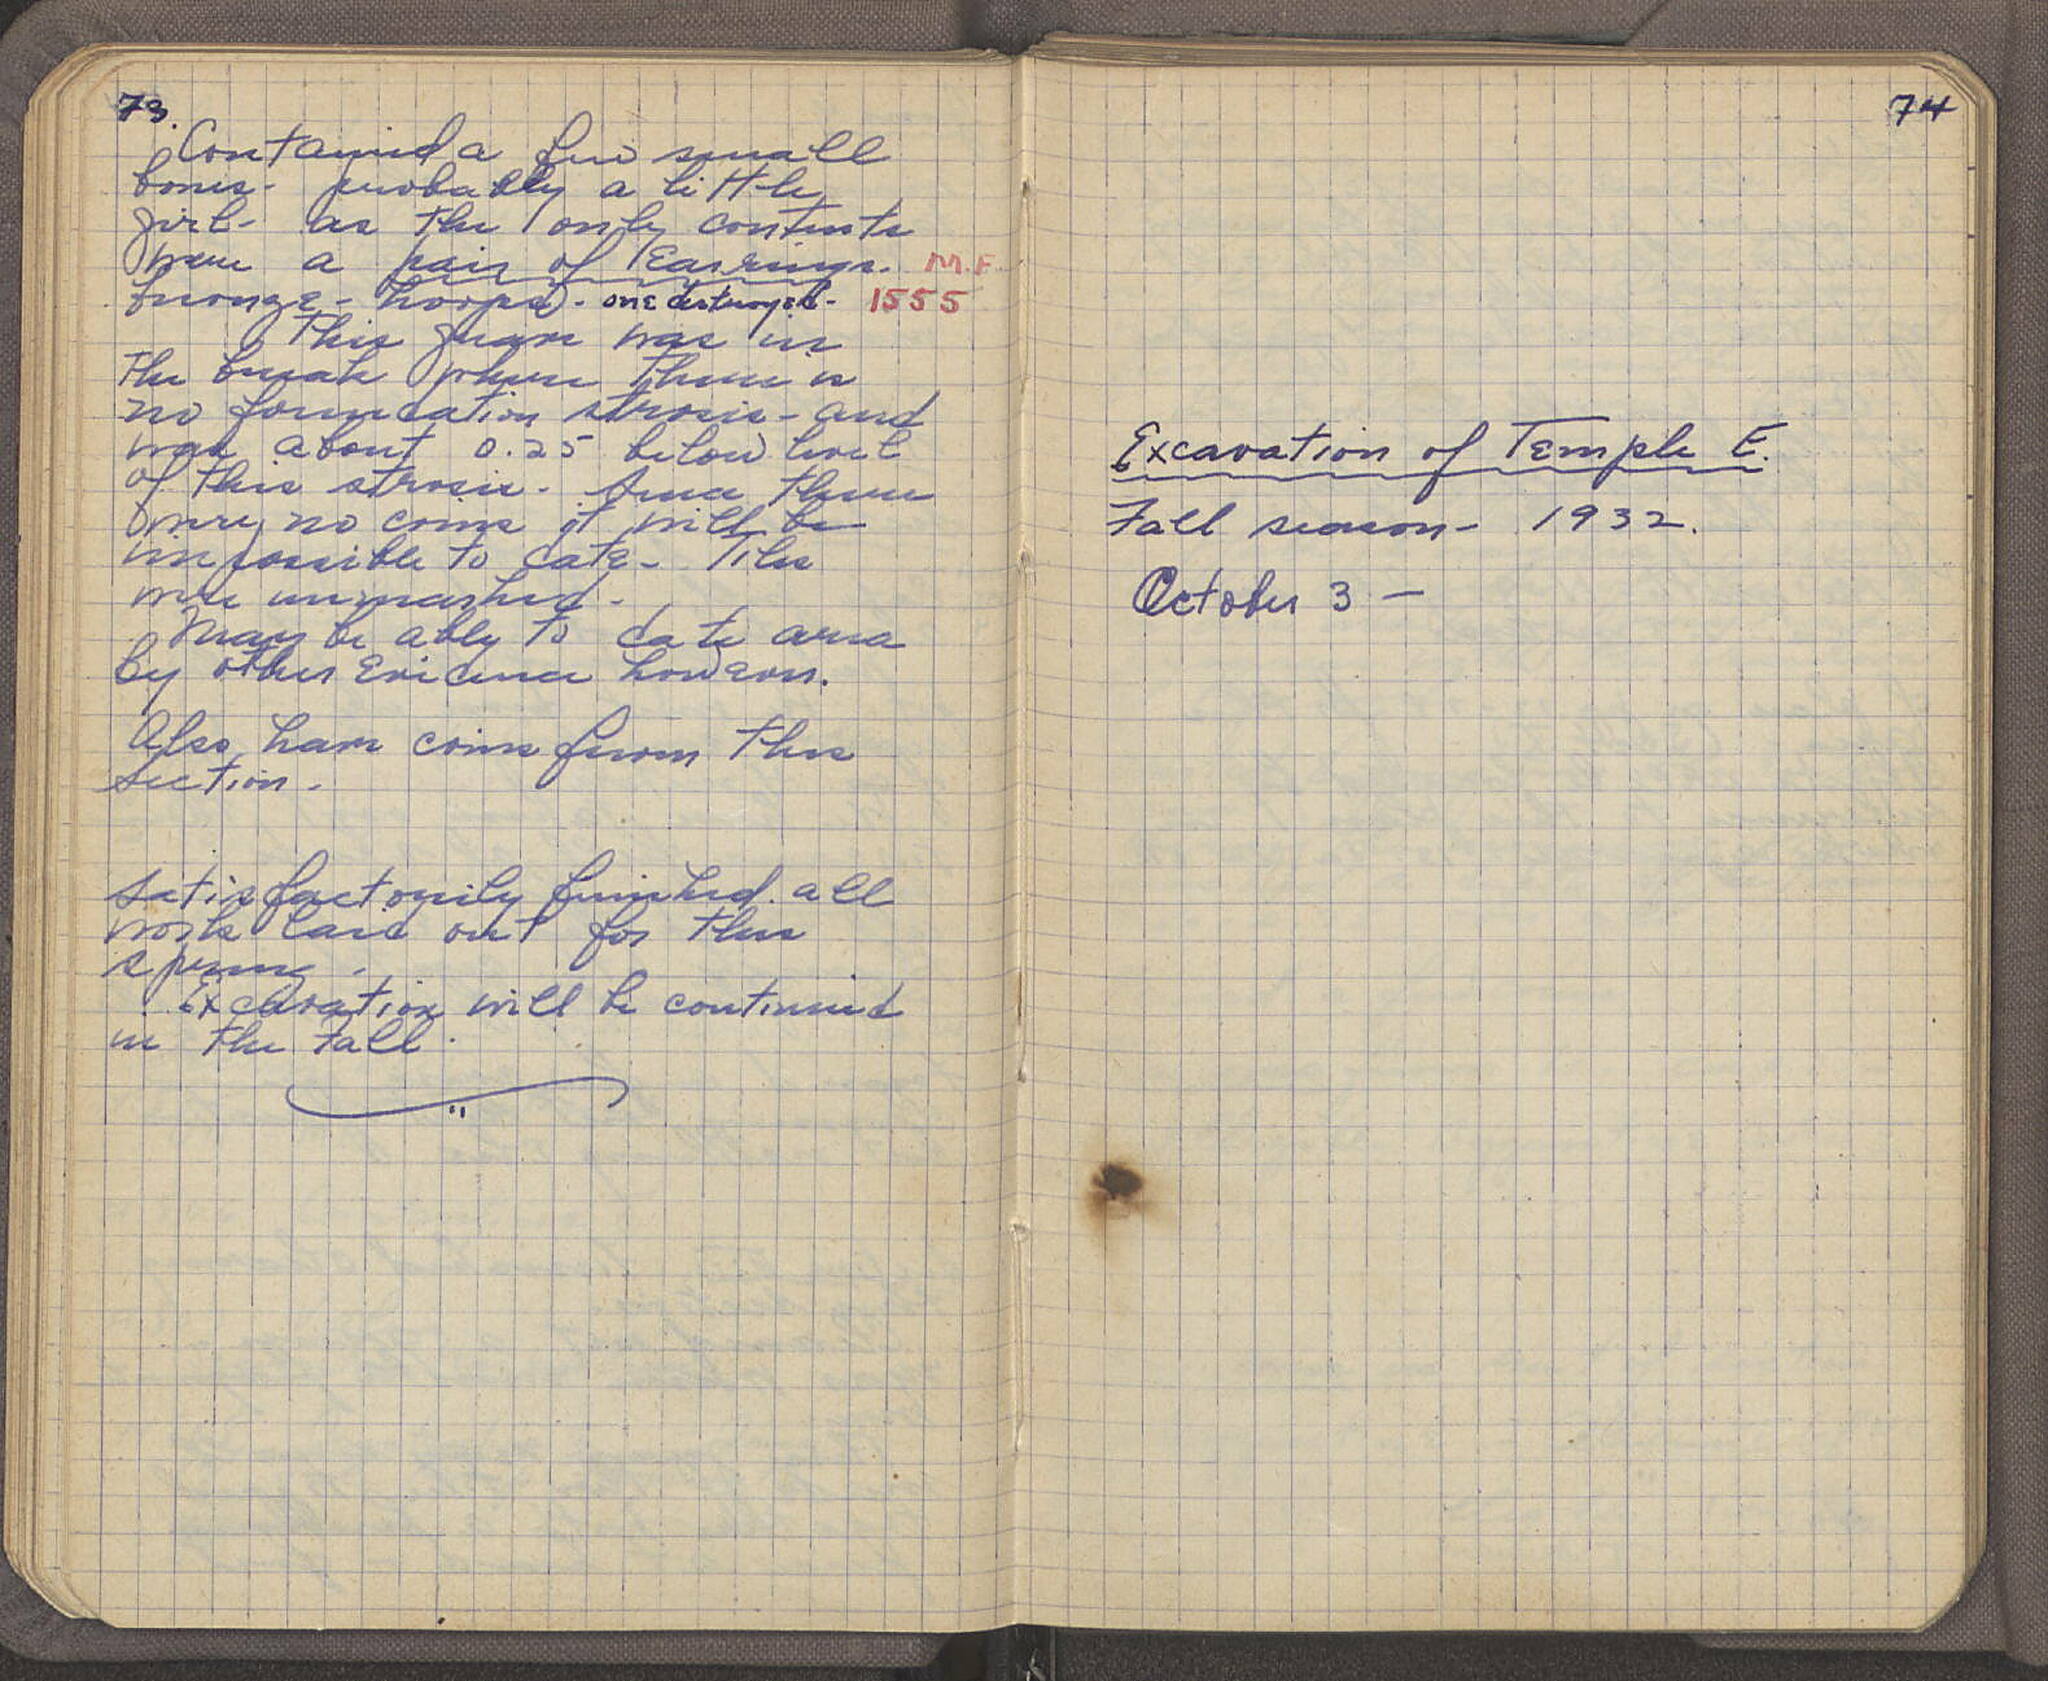 73.
Contained a few small
bones - probably a little
girl - as the only contents
were a pair of Earrings. M.F.
bronze - hoops - one destroyed - 1555
This grave was in
the break where there is
no foundation strosis - and
was about 0.25 below level
of this strosis. Since there
were no coins it will be
impossible to date - Tiles
were unmarked -
May be able to date area
by other evidence however.
Also have coins from this
section.
Satisfactorily finished all
work laid out for this
spring.
Excavation will be continued
in the Fall.
74
Excavation of Temple E.
Fall season - 1932.
October 3 -